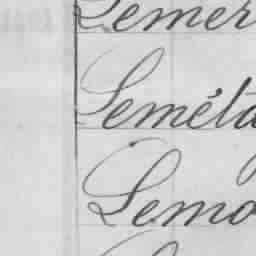 Lemer
Leméta
Lemo